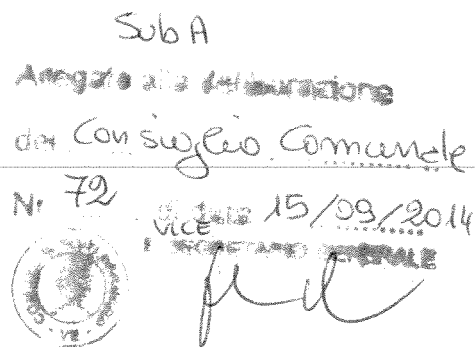 Sub A
Allegato alla deliberazione
del Consiglio Comunale
N° 72 di data 15/09/2014
VICE
IL SEGRETARIO GENERALE